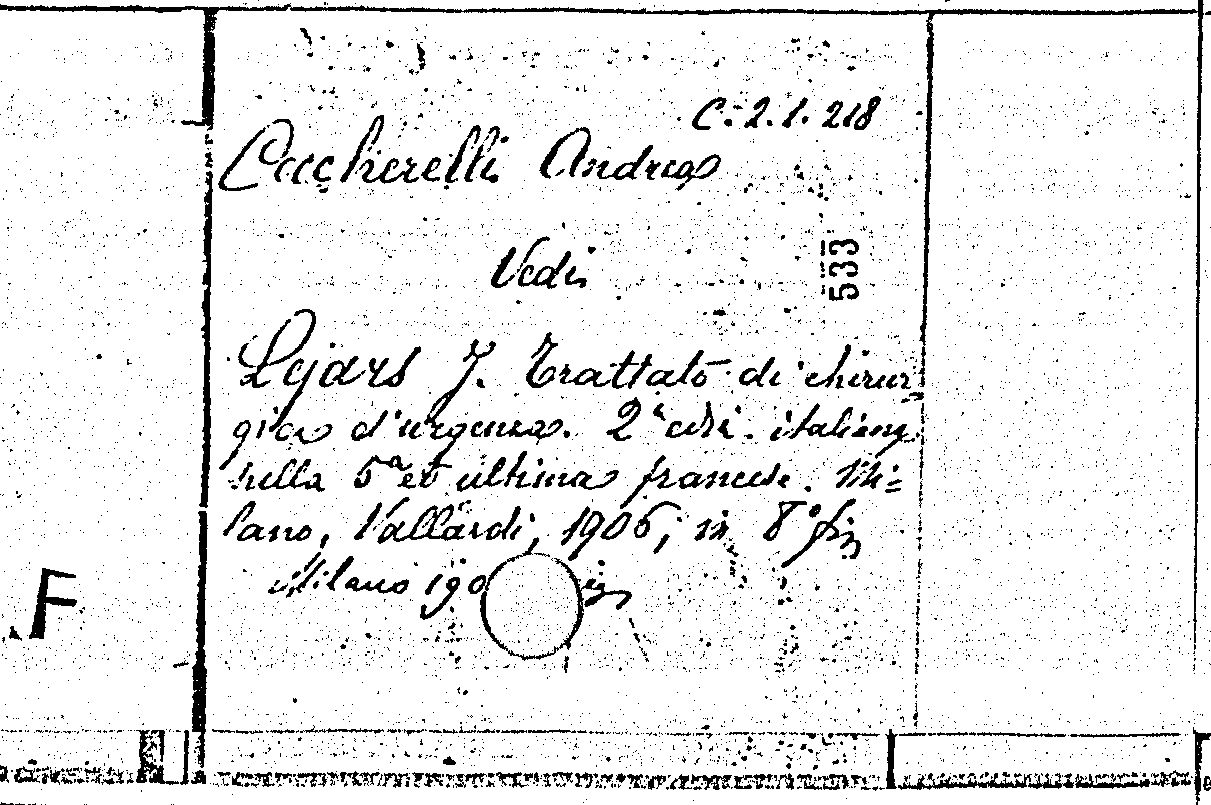 C. 2. 1. 218
Ceccherelli Andrea
Vedi
533
Lejars F. Trattato di chirur
gia d'urgenza. 2ª edi. italiana
sulla 5ª ed ultima francese. Mi=
lano, Vallardi, 1906, in 8° fig
Milano 190
F